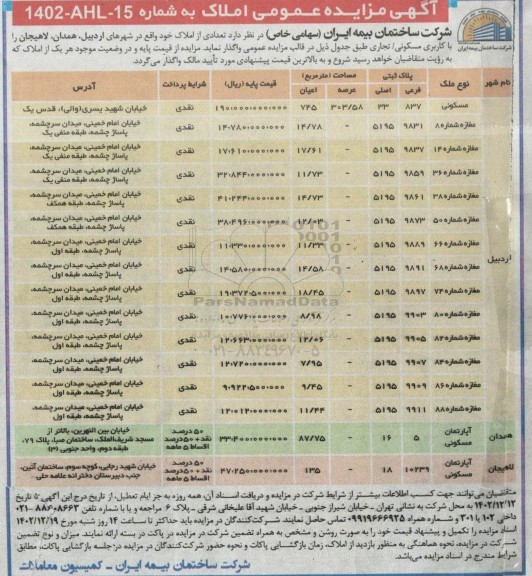 آگهی مزایده عمومی املاک به شماره 1402-AHL-15
شرکت ساختمان بیمه ایران (سهامی خاص) در نظر دارد تعدادی از املاک خود واقع در شهرهای اردبیل، همدان، لاهیجان را
با کاربری مسکونی/ تجاری طبق جدول ذیل در قالب مزایده عمومی واگذار نماید. مزایده از قیمت پایه و در وضعیت موجود هر یک از املاک که
به رؤیت متقاضیان خواهد رسید شروع و به بالاترین قیمت پیشنهادی مورد تأیید مالک واگذار می‌گردد.
شرکت ساختمان بیمه ایران
نام شهر نوع ملک پلاک ثبتی مساحت (مترمربع) قیمت پایه (ریال) شرایط پرداخت آدرس
فرعی اصلی عرصه اعیان
مسکونی ۸۳۷ ۳۳ ۳۰۳/۵۸ ۷۴۵ ۱۹۰،۰۰۰،۰۰۰،۰۰۰ نقدی خیابان شهید یسری(والی)، قدس یک
مغازه شماره ۸ ۹۸۳۱ ۵۱۹۵ - ۱۴/۷۸ ۱۴،۷۸۰،۰۰۰،۰۰۰ نقدی خیابان امام خمینی، میدان سرچشمه، پاساژ چشمه، طبقه منفی یک
مغازه شماره ۱۴ ۹۸۳۷ ۵۱۹۵ - ۱۷/۶۱ ۱۷،۶۱۰،۰۰۰،۰۰۰ نقدی خیابان امام خمینی، میدان سرچشمه، پاساژ چشمه، طبقه منفی یک
مغازه شماره ۳۶ ۹۸۵۹ ۵۱۹۵ - ۱۱/۷۳ ۳۲،۸۴۴،۰۰۰،۰۰۰ نقدی خیابان امام خمینی، میدان سرچشمه، پاساژ چشمه، طبقه همکف
مغازه شماره ۳۸ ۹۸۶۱ ۵۱۹۵ - ۱۴/۷۳ ۴۱،۲۴۴،۰۰۰،۰۰۰ نقدی خیابان امام خمینی، میدان سرچشمه، پاساژ چشمه، طبقه همکف
مغازه شماره ۵۰ ۹۸۷۳ ۵۱۹۵ - ۱۲/۰۳ ۳۸،۴۹۶،۰۰۰،۰۰۰ نقدی خیابان امام خمینی، میدان سرچشمه، پاساژ چشمه، طبقه همکف
اردبیل
مغازه شماره ۶۶ ۹۸۸۹ ۵۱۹۵ - ۱۱/۳۳ ۱۱،۳۳۰،۰۰۰،۰۰۰ نقدی خیابان امام خمینی، میدان سرچشمه، پاساژ چشمه، طبقه اول
مغازه شماره ۶۸ ۹۸۹۱ ۵۱۹۵ - ۱۴/۵۸ ۱۴،۵۸۰،۰۰۰،۰۰۰ نقدی خیابان امام خمینی، میدان سرچشمه، پاساژ چشمه، طبقه اول
مغازه شماره ۷۴ ۹۸۹۷ ۵۱۹۵ - ۱۸/۴۵ ۱۹،۳۷۲،۵۰۰،۰۰۰ نقدی خیابان امام خمینی، میدان سرچشمه، پاساژ چشمه، طبقه اول
مغازه شماره ۸۰ ۹۹۰۳ ۵۱۹۵ - ۸/۹۸ ۱۰،۷۷۶،۰۰۰،۰۰۰ نقدی خیابان امام خمینی، میدان سرچشمه، پاساژ چشمه، طبقه اول
مغازه شماره ۸۲ ۹۹۰۵ ۵۱۹۵ - ۱۲/۰۶ ۱۲،۶۶۳،۰۰۰،۰۰۰ نقدی خیابان امام خمینی، میدان سرچشمه، پاساژ چشمه، طبقه اول
مغازه شماره ۸۴ ۹۹۰۷ ۵۱۹۵ - ۷/۹۵ ۱۲،۷۲۰،۰۰۰،۰۰۰ نقدی خیابان امام خمینی، میدان سرچشمه، پاساژ چشمه، طبقه اول
مغازه شماره ۸۶ ۹۹۰۹ ۵۱۹۵ - ۹/۴۵ ۹،۹۲۲،۵۰۰،۰۰۰ نقدی خیابان امام خمینی، میدان سرچشمه، پاساژ چشمه، طبقه اول
مغازه شماره ۸۸ ۹۹۱۱ ۵۱۹۵ - ۱۱/۴۴ ۱۲،۰۱۲،۰۰۰،۰۰۰ نقدی خیابان امام خمینی، میدان سرچشمه، پاساژ چشمه، طبقه اول
همدان آپارتمان مسکونی ۵ ۱۶ - ۸۷/۷۵ ۳۳،۴۰۰،۰۰۰،۰۰۰ ۵۰ درصد نقد + ۵۰ درصد اقساط ۵ ماهه خیابان بین النهرین، بالاتر از مسجد شریف‌الملک، ساختمان صبا، پلاک ۷۹، طبقه دوم، واحد جنوبی (۳)
لاهیجان آپارتمان مسکونی ۱۰۲۳۹ ۱۸ - ۱۳۵ ۴۷،۲۵۰،۰۰۰،۰۰۰ ۵۰ درصد نقد + ۵۰ درصد اقساط ۵ ماهه خیابان شهید رجایی، کوچه سوم، ساختمان آئین، جنب دبیرستان دخترانه علامه حلی
ParsNamadData
۰۲۱-۸۸۳۴۹۶۷۰-۵
متقاضیان می‌توانند جهت کسب اطلاعات بیشتر از شرایط شرکت در مزایده و دریافت اسناد آن، همه روزه به جز ایام تعطیل، از تاریخ درج این آگهی تا تاریخ
۱۴۰۲/۱۲/۱۲ به محل شرکت به نشانی تهران - خیابان شیراز جنوبی - خیابان شهید آقا علیخانی شرقی - پلاک ۶ مراجعه و یا با شماره تلفن ۸۸۴۰۸۶۶۳-۰۲۱
داخلی ۱۰۲ یا ۲۰۱ و شماره همراه ۰۹۹۱۹۶۶۶۹۲۵ تماس حاصل نمایند. شرکت‌کنندگان در مزایده باید حداکثر تا ساعت ۱۴ روز شنبه مورخ ۱۴۰۲/۱۲/۱۹
اسناد مزایده را تکمیل و پیشنهاد قیمت خود را به صورت روشن و مشخص به همراه تضمین شرکت در مزایده در پاکت در بسته ارائه نمایند. میزان و نوع تضمین
شرکت در مزایده، نحوه هماهنگی به منظور بازدید از املاک، زمان بازگشایی پاکات و نحوه حضور شرکت‌کنندگان در مزایده در جلسه بازگشایی پاکات، مطابق
شرایط مندرج در اسناد مزایده می‌باشد.
شرکت ساختمان بیمه ایران - کمیسیون معاملات